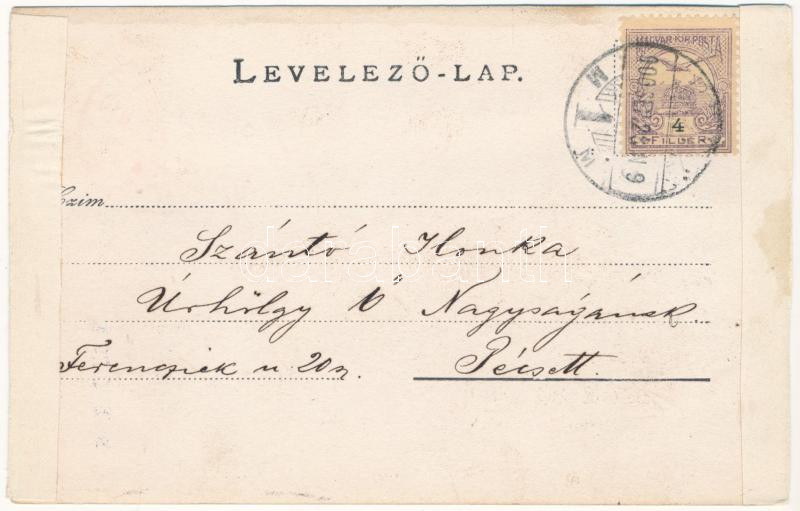 LEVELEZŐ-LAP.
MAGYAR KIR. POSTA
4
FILLER
Czim
Szántó Ilonka
Úrhölgy Ő Nagyságának
Ferencziek u 20 sz.
Pécsett.
darabanth